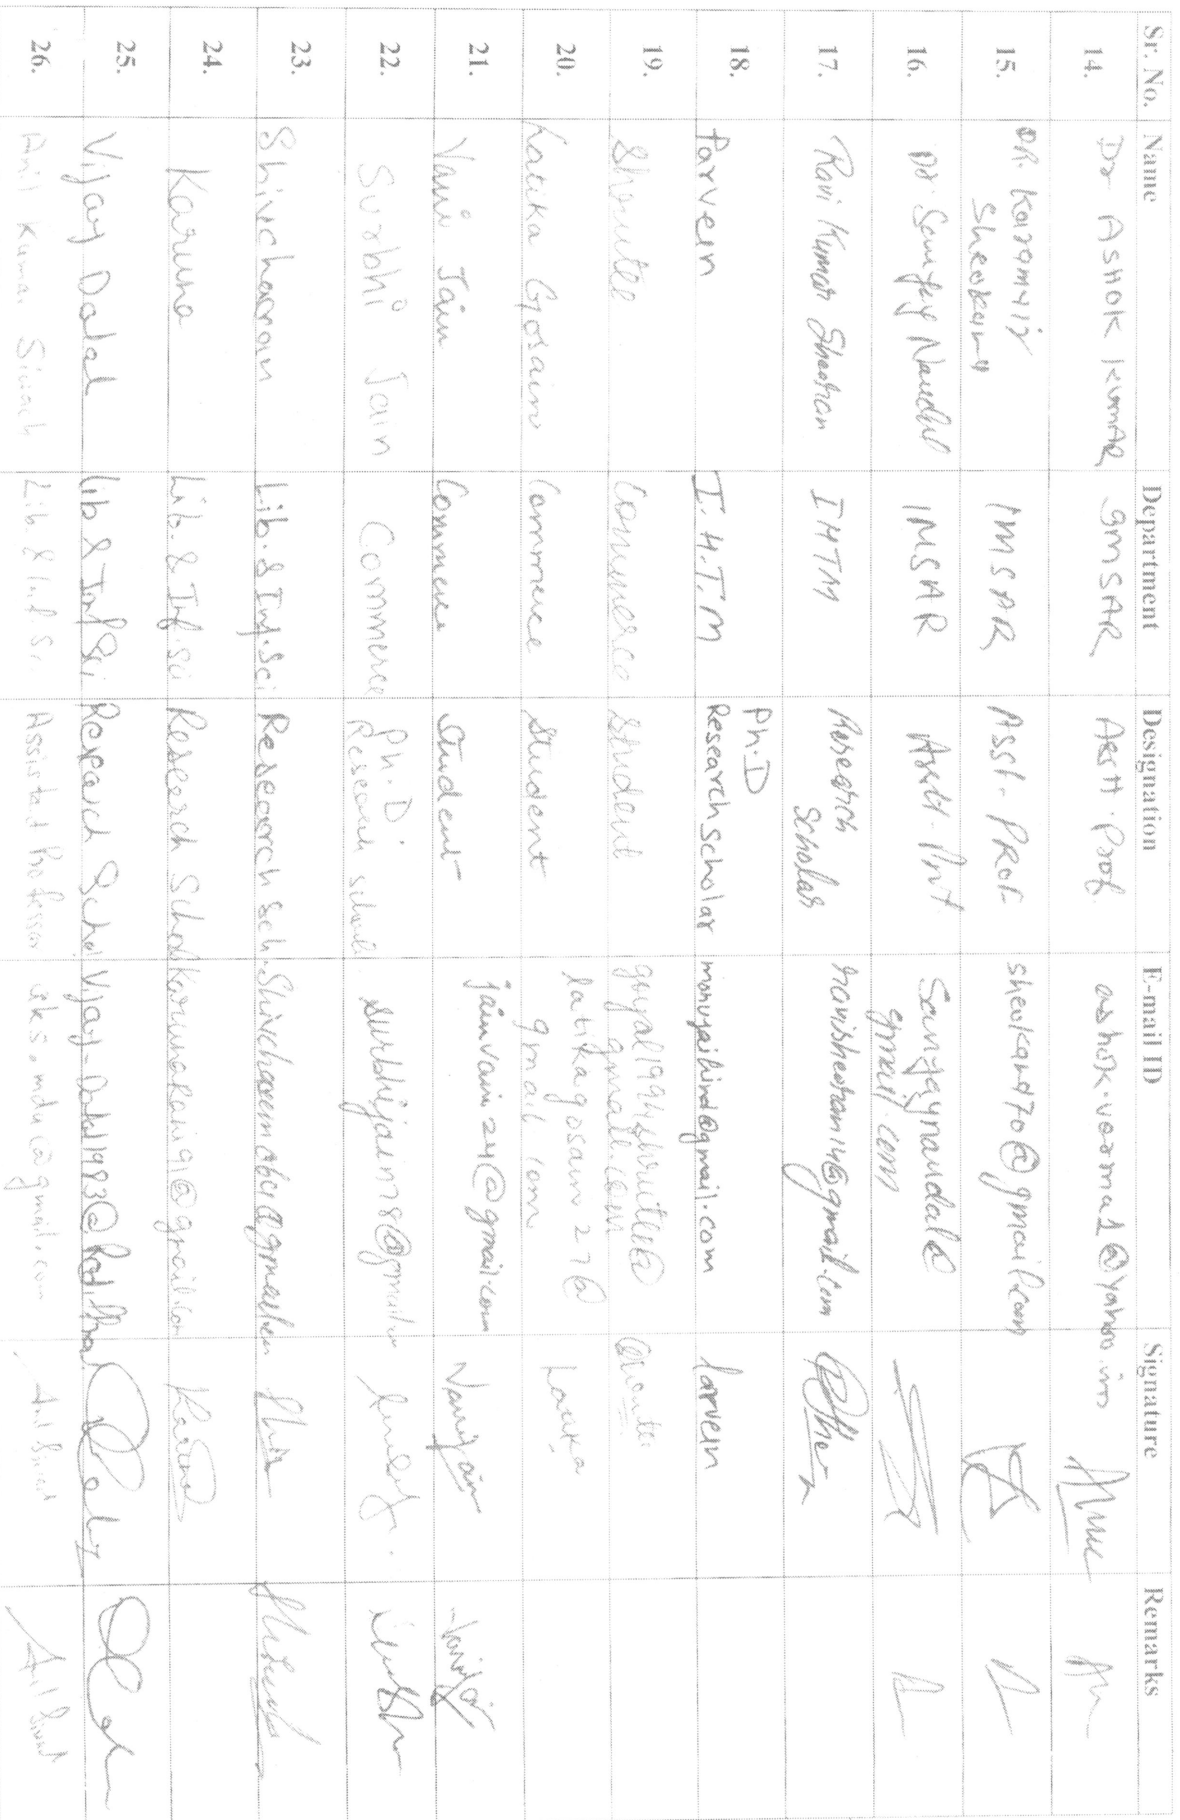 Sr. No. Name Department Designation E-mail ID Signature Remarks
14. Dr Ashok Kumar IMSAR Asstt. Prof. ashok.verma1@yahoo.in
15. DR. Karamvir Sheokand IMSAR Asst. Prof. sheokand70@gmail.com
16. Dr. Sanjay Nandal IMSAR Asstt. Prof. Sanjaynandal@
gmail.com
17. Ravi Kumar Sheoran IHTM Research
Scholar ravisheoran14@gmail.com
18. Parveen I.H.T.M Ph.D
Research Scholar monujaihind@gmail.com Parveen
19. Shrutee Commerce Student goyal1994shrutee@
gmail.com Shrutee
20. Latika Gosain Commerce Student latikagosain27@
gmail.com Latika
21. Vani Jain Commerce Student jainvani24@gmail.com Vanijain
22. Surbhi Jain Commerce Ph.D
Research scholar surbhijain78@gmail.com
23. Shivcharan Lib. & Inf. Sci Research Sch.
24. Karuna Lib. & Inf. Sci Research Schol Karuna
25. Vijay Dalal Lib & Inf Sci Research Schol
26. Anil Kumar Siwach Lib. & Inf. Sc. Assistant Professor aks.mdu@gmail.com Anil Siwach Anil Siwach